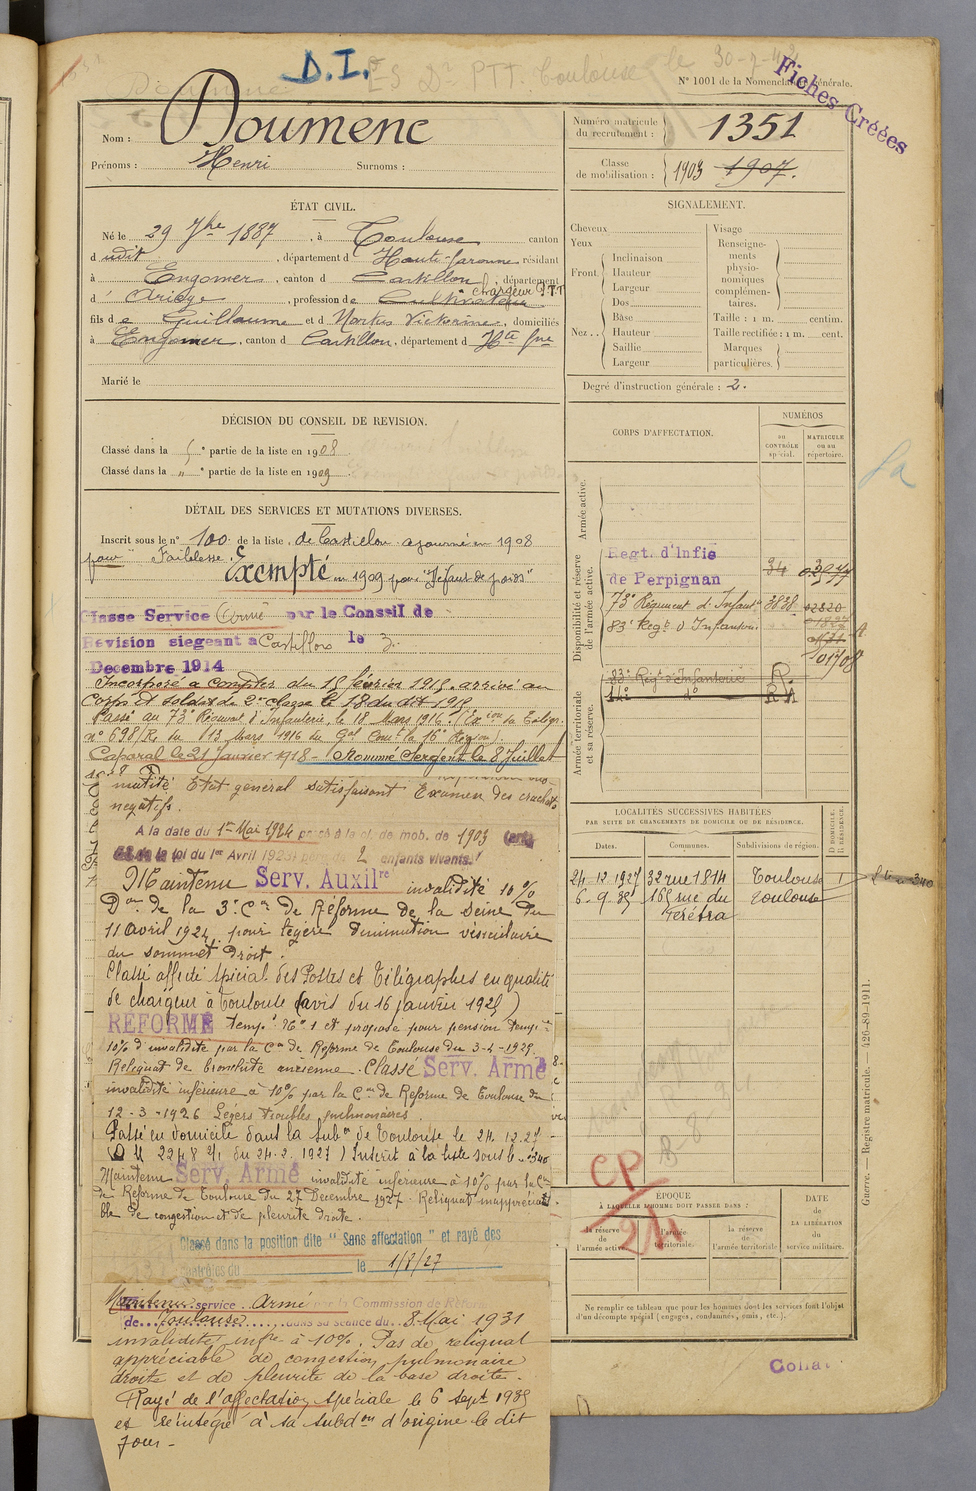 D.I.
PTT. Toulouse le 30-7-42
N° 1001 de la Nomenclature générale.
Fiches Créées
Nom : Doumenc
Prénoms : Henri Surnoms :
Numéro matricule du recrutement : 1351
Classe de mobilisation : 1903 1907.
ÉTAT CIVIL.
Né le 29 7bre 1887, à Toulouse canton
d udit, département d Haute-Garonne résidant
à Engomer, canton d Castillon, département
chargeur PTT
d' Ariège, profession de Cultivateur
fils de Guillaume et d Nortes Victorine, domiciliés
à Engomer, canton d Castillon, département d Hte Gne
Marié le
SIGNALEMENT.
Cheveux
Yeux
Front. Inclinaison
Hauteur
Largeur
Nez.. Dos
Bâse
Hauteur
Saillie
Largeur
Visage
Renseignements physionomiques complémentaires.
Taille : 1 m. centim.
Taille rectifiée : 1 m. cent.
Marques particulières.
Degré d'instruction générale : 2.
DÉCISION DU CONSEIL DE REVISION.
Classé dans la 5e partie de la liste en 1908
Classé dans la " e partie de la liste en 1909
DÉTAIL DES SERVICES ET MUTATIONS DIVERSES.
Inscrit sous le n° 100 de la liste de Castillon ajourné en 1908
pour "Faiblesse".
Exempté en 1909 pour "Défaut de poids"
Classe Service Armé par le Conseil de
Revision siegeant a Castillon le 3
Decembre 1914
Incorporé à compter du 18 février 1915. arrivé au
Corps et soldat de 2e classe le 18 du dit 1915
Passé au 73e Régiment d'Infanterie, le 18 Mars 1916.
n° 698/R. du 13 Mars 1916 du Gal Comt la 16e Région).
Caporal le 21 Janvier 1918 - Nommé Sergent le 8 Juillet
matité Etat general satisfaisant Examen des crachats
negatifs.
A la date du 1er Mai 1924 passé à la cl. de mob. de 1903 (art.
58 de la loi du 1er Avril 1923) père de 2 enfants vivants.
Maintenu Serv. Auxilre invalidité 10 %
Don de la 3e Con de Réforme de la Seine du
11 Avril 1924 pour légère diminution vésiculaire
du sommet droit.
Classé affecté spécial des Postes et Télégraphes en qualité
de chargeur à Toulouse (avis du 16 janvier 1925)
RÉFORMÉ tempre N° 1 et proposé pour pension temp
10% d'invalidité par la Con de Reforme de Toulouse du 3-2-1925.
Reliquat de bronchite ancienne. Classé Serv. Armé
invalidité inférieure à 10% par la Con de Reforme de Toulouse du
12-3-1926 Légers troubles pulmonaires.
Passé en domicile dans la Subon de Toulouse le 24.12.27
(D M 2248 2/1 du 24.2.1927) Inscrit à la liste sous le n° 340
Maintenu Serv. Armé invalidité inférieure à 10% par la Con
de Reforme de Toulouse du 27 Decembre 1927. Reliquat inapprécia-
ble de congestion et de pleurite droite.
Classé dans la position dite "Sans affectation" et rayé des
contrôles du le 1/8/27
Maintenu service Armé par la Commission de Réforme
de Toulouse dans sa séance du 8 Mai 1931
invalidité infre à 10%. Pas de reliquat
appréciable de congestion pulmonaire
droite et de pleurite de la base droite.
Rayé de l'affectation spéciale le 6 sept 1935
et réintégré à sa subdon d'origine le dit
jour -
CORPS D'AFFECTATION.
NUMÉROS
au contrôle spécial.
matricule ou au répertoire.
Armée active.
Disponibilité et réserve de l'armée active.
Regt. d'Infie de Perpignan 34
73e Régiment d'Infantie 3838 02820
83e Regt d'Infanterie
01708
Armée territoriale et sa réserve.
83e Regt d'Infanterie
14e do
LOCALITÉS SUCCESSIVES HABITÉES
PAR SUITE DE CHANGEMENTS DE DOMICILE OU DE RÉSIDENCE.
D. DOMICILE. R. RÉSIDENCE.
Dates. Communes. Subdivisions de région.
24-12-1927 32 rue 1814 Toulouse
6-9-35 165 rue du Férétra Toulouse
CP
211
ÉPOQUE
À LAQUELLE L'HOMME DOIT PASSER DANS :
la réserve de l'armée active.
l'armée territoriale.
la réserve de l'armée territoriale.
DATE DE LA LIBÉRATION du service militaire.
Ne remplir ce tableau que pour les hommes dont les services font l'objet
d'un décompte spécial (engagés, condamnés, omis, etc.).
Guerre. — Registre matricule. — 426-89-1911.